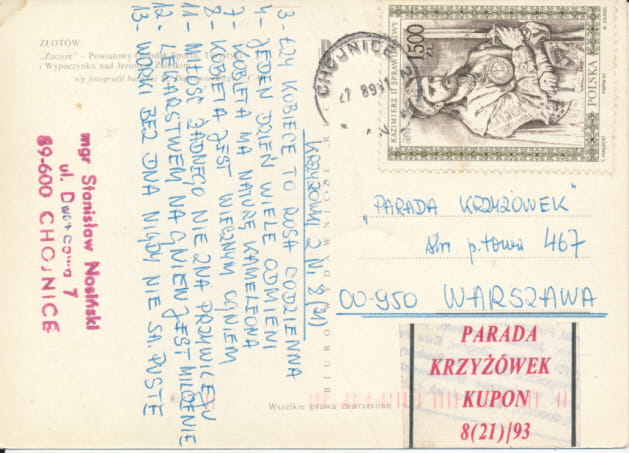 ZŁOTÓW
"Zacisze" – Powiatowy
i Wypoczynku nad Jezior
wg fotografii
KRZYŻÓWKI Z NR 8 (21)
3 - ŁZY KOBIECE TO ROSA CODZIENNA
4 - JEDEN DZIEŃ WIELE ODMIENI
7 - KOBIETA MA NATURĘ KAMELEONA
8 - KOBIETA JEST WIECZNYM OGNIEM
11 - MIŁOŚĆ ŻADNEGO NIE ZNA PRZYWILEJU
12 - LEKARSTWEM NA GNIEW JEST MILCZENIE
13 - WORKI BEZ DNA NIGDY NIE SĄ PUSTE
mgr Stanisław Nosiński
ul. Dworcowa 7
89-600 CHOJNICE
BIURO WYDAWNICZE
Wszelkie prawa zastrzeżone
CHOJNICE 2
KAZIMIERZ II SPRAWIEDLIWY
1500 ZŁ
POLSKA
"PARADA KRZYŻÓWEK"
skr. p-towa 467
00-950 WARSZAWA
PARADA
KRZYŻÓWEK
KUPON
8(21)/93